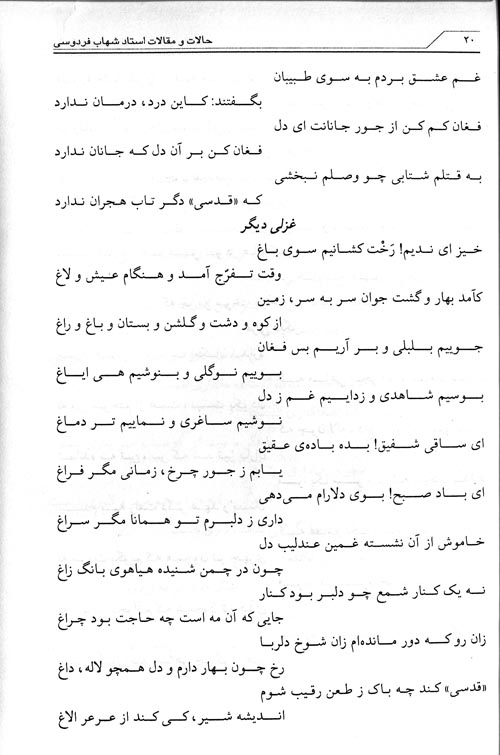 ۲۰
حالات و مقالات استاد شهاب فردوسی
غم عشق بردم به سوی طبیبان
بگفتند: کاین درد، درمان ندارد
فغان کم کن از جور جانانت ای دل
فغان کن بر آن دل که جانان ندارد
به قتلم شتابی چو وصلم نبخشی
که «قدسی» دگر تاب هجران ندارد
غزلی دیگر
خیز ای ندیم! رَخْت کشانیم سوی باغ
وقت تفرّج آمد و هنگام عیش و لاغ
کآمد بهار و گشت جوان سر به سر، زمین
از کوه و دشت و گلشن و بستان و باغ و راغ
جوییم بلبلی و بر آریم بس فغان
بوییم نوگلی و بنوشیم هی ایاغ
بوسیم شاهدی و زداییم غم ز دل
نوشیم ساغری و نماییم تر دماغ
ای ساقی شفیق! بده باده‌ی عقیق
یابم ز جور چرخ، زمانی مگر فراغ
ای باد صبح! بوی دلارام می‌دهی
داری ز دلبرم تو همانا مگر سراغ
خاموش از آن نشسته غمین عندلیب دل
چون در چمن شنیده هیاهوی بانگ زاغ
نه یک کنار شمع چو دلبر بود کنار
جایی که آن مه است چه حاجت بود چراغ
زان رو که دور مانده‌ام زان شوخ دلربا
رخ چون بهار دارم و دل همچو لاله، داغ
«قدسی» کند چه باک ز طعن رقیب شوم
اندیشه شیر، کی کند از عرعر الاغ